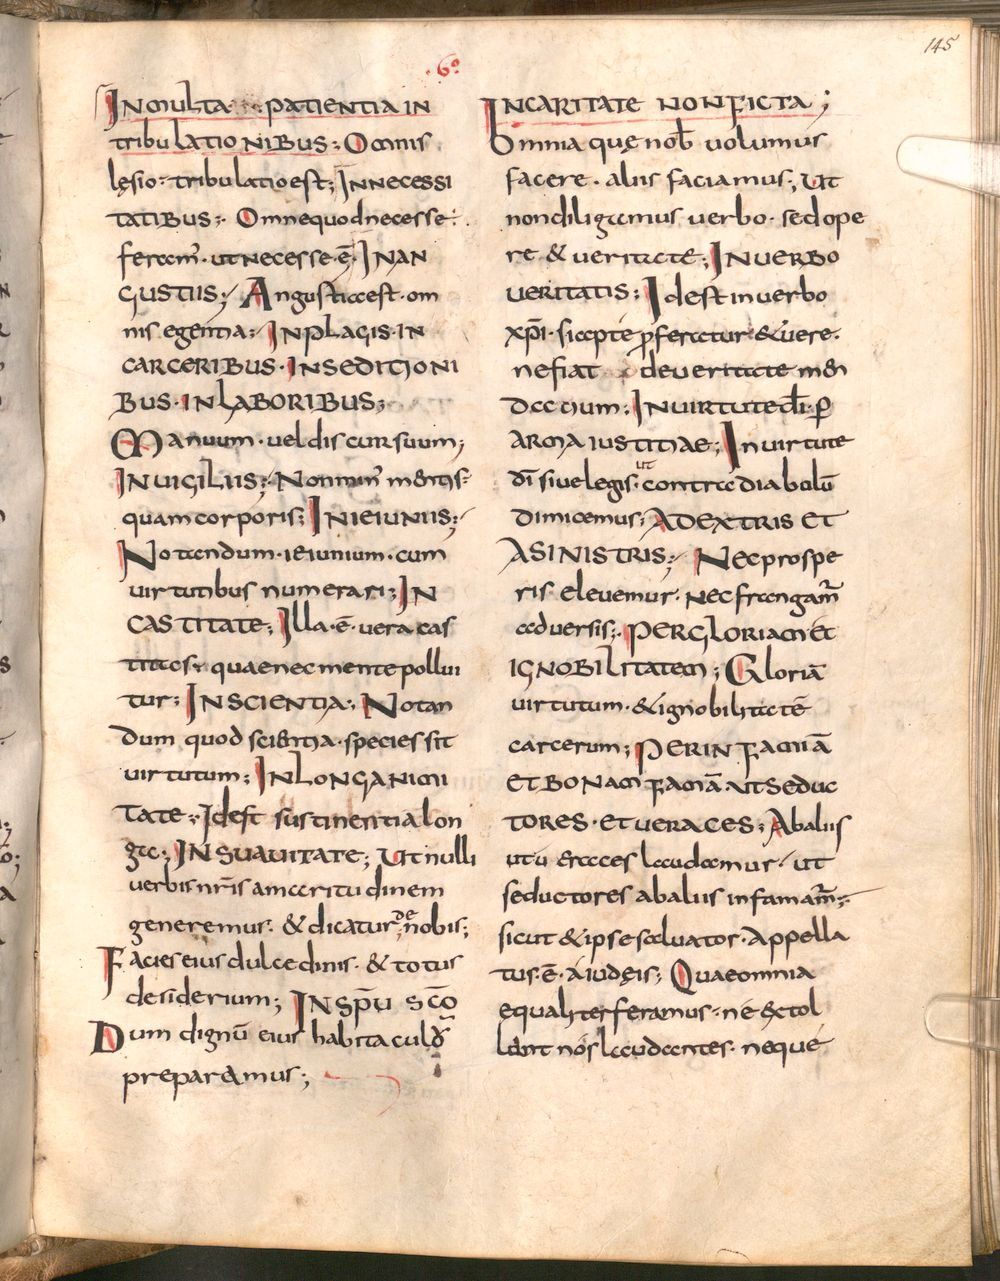 145
·6°
IN MULTA PATIENTIA IN
tribulationibus; Omnis
lęsio· tribulatio est; In necessi
TATIBUS; Omne quod necesse·
feram̄· ut necesse ē· IN AN
GUSTIIS; Angusticcest· om
nis egentia; IN PLAGIS· IN
CARCERIBUS· IN SEDITIONI
BUS· IN LABORIBUS;
Manuum· vel discursuum;
IN VIGILIIS; Non min' mentis·
quam corporis; IN IEIUNIIS;
Notandum· ieiunium· cum
virtutibus numerari; IN
CASTITATE; Illa· ē· vera cas
titas· quae nec mente pollui
tur; IN SCIENTIA; Notan
dum quod scientia· species sit
virtutum; IN LONGANIMI
TATE; Idest sustinentia lon
ga; IN SUAVITATE; Ut nulli
verbis nr̄is amaritudinem
generemus· & dicatur de nobis;
Facies eius dulcedinis· & totus
desiderium; IN SP̄U SC̄O
Dum dignū eius habitaculū
preparamus;
IN CARITATE NON FICTA;
Omnia quę nob̄ volumus
facere· aliis faciamus; Ut
non diligamus verbo· sed ope
re & veritate; IN VERBO
VERITATIS; Idest in verbo
xp̄i· si apte proferatur & vere·
ne fiat de veritate men
dacium; IN VIRTUTE d̄i· P̄
ARMA IUSTITIAE; In virtute
d̄i sive legis· ut contra diabolū
dimicemus; A DEXTRIS ET
A SINISTRIS; Nec prospe
ris elevemur· nec frangam̄
adversis; PER GLORIAM ET
IGNOBILITATEM; Gloriā
virtutum· & ignobilitatē
carcerum; PER INFAMIĀ
ET BONAM FAMĀ· UT SEDUC
TORES· ET VERACES; Ab aliis
ut veraces laudamur· ut
seductores ab aliis infamam̄;
sicut & ipse salvator· appella
tus· ē· a iudęis; Quae omnia
equaliter feramus· ne extol
lant nos laudantes· neque